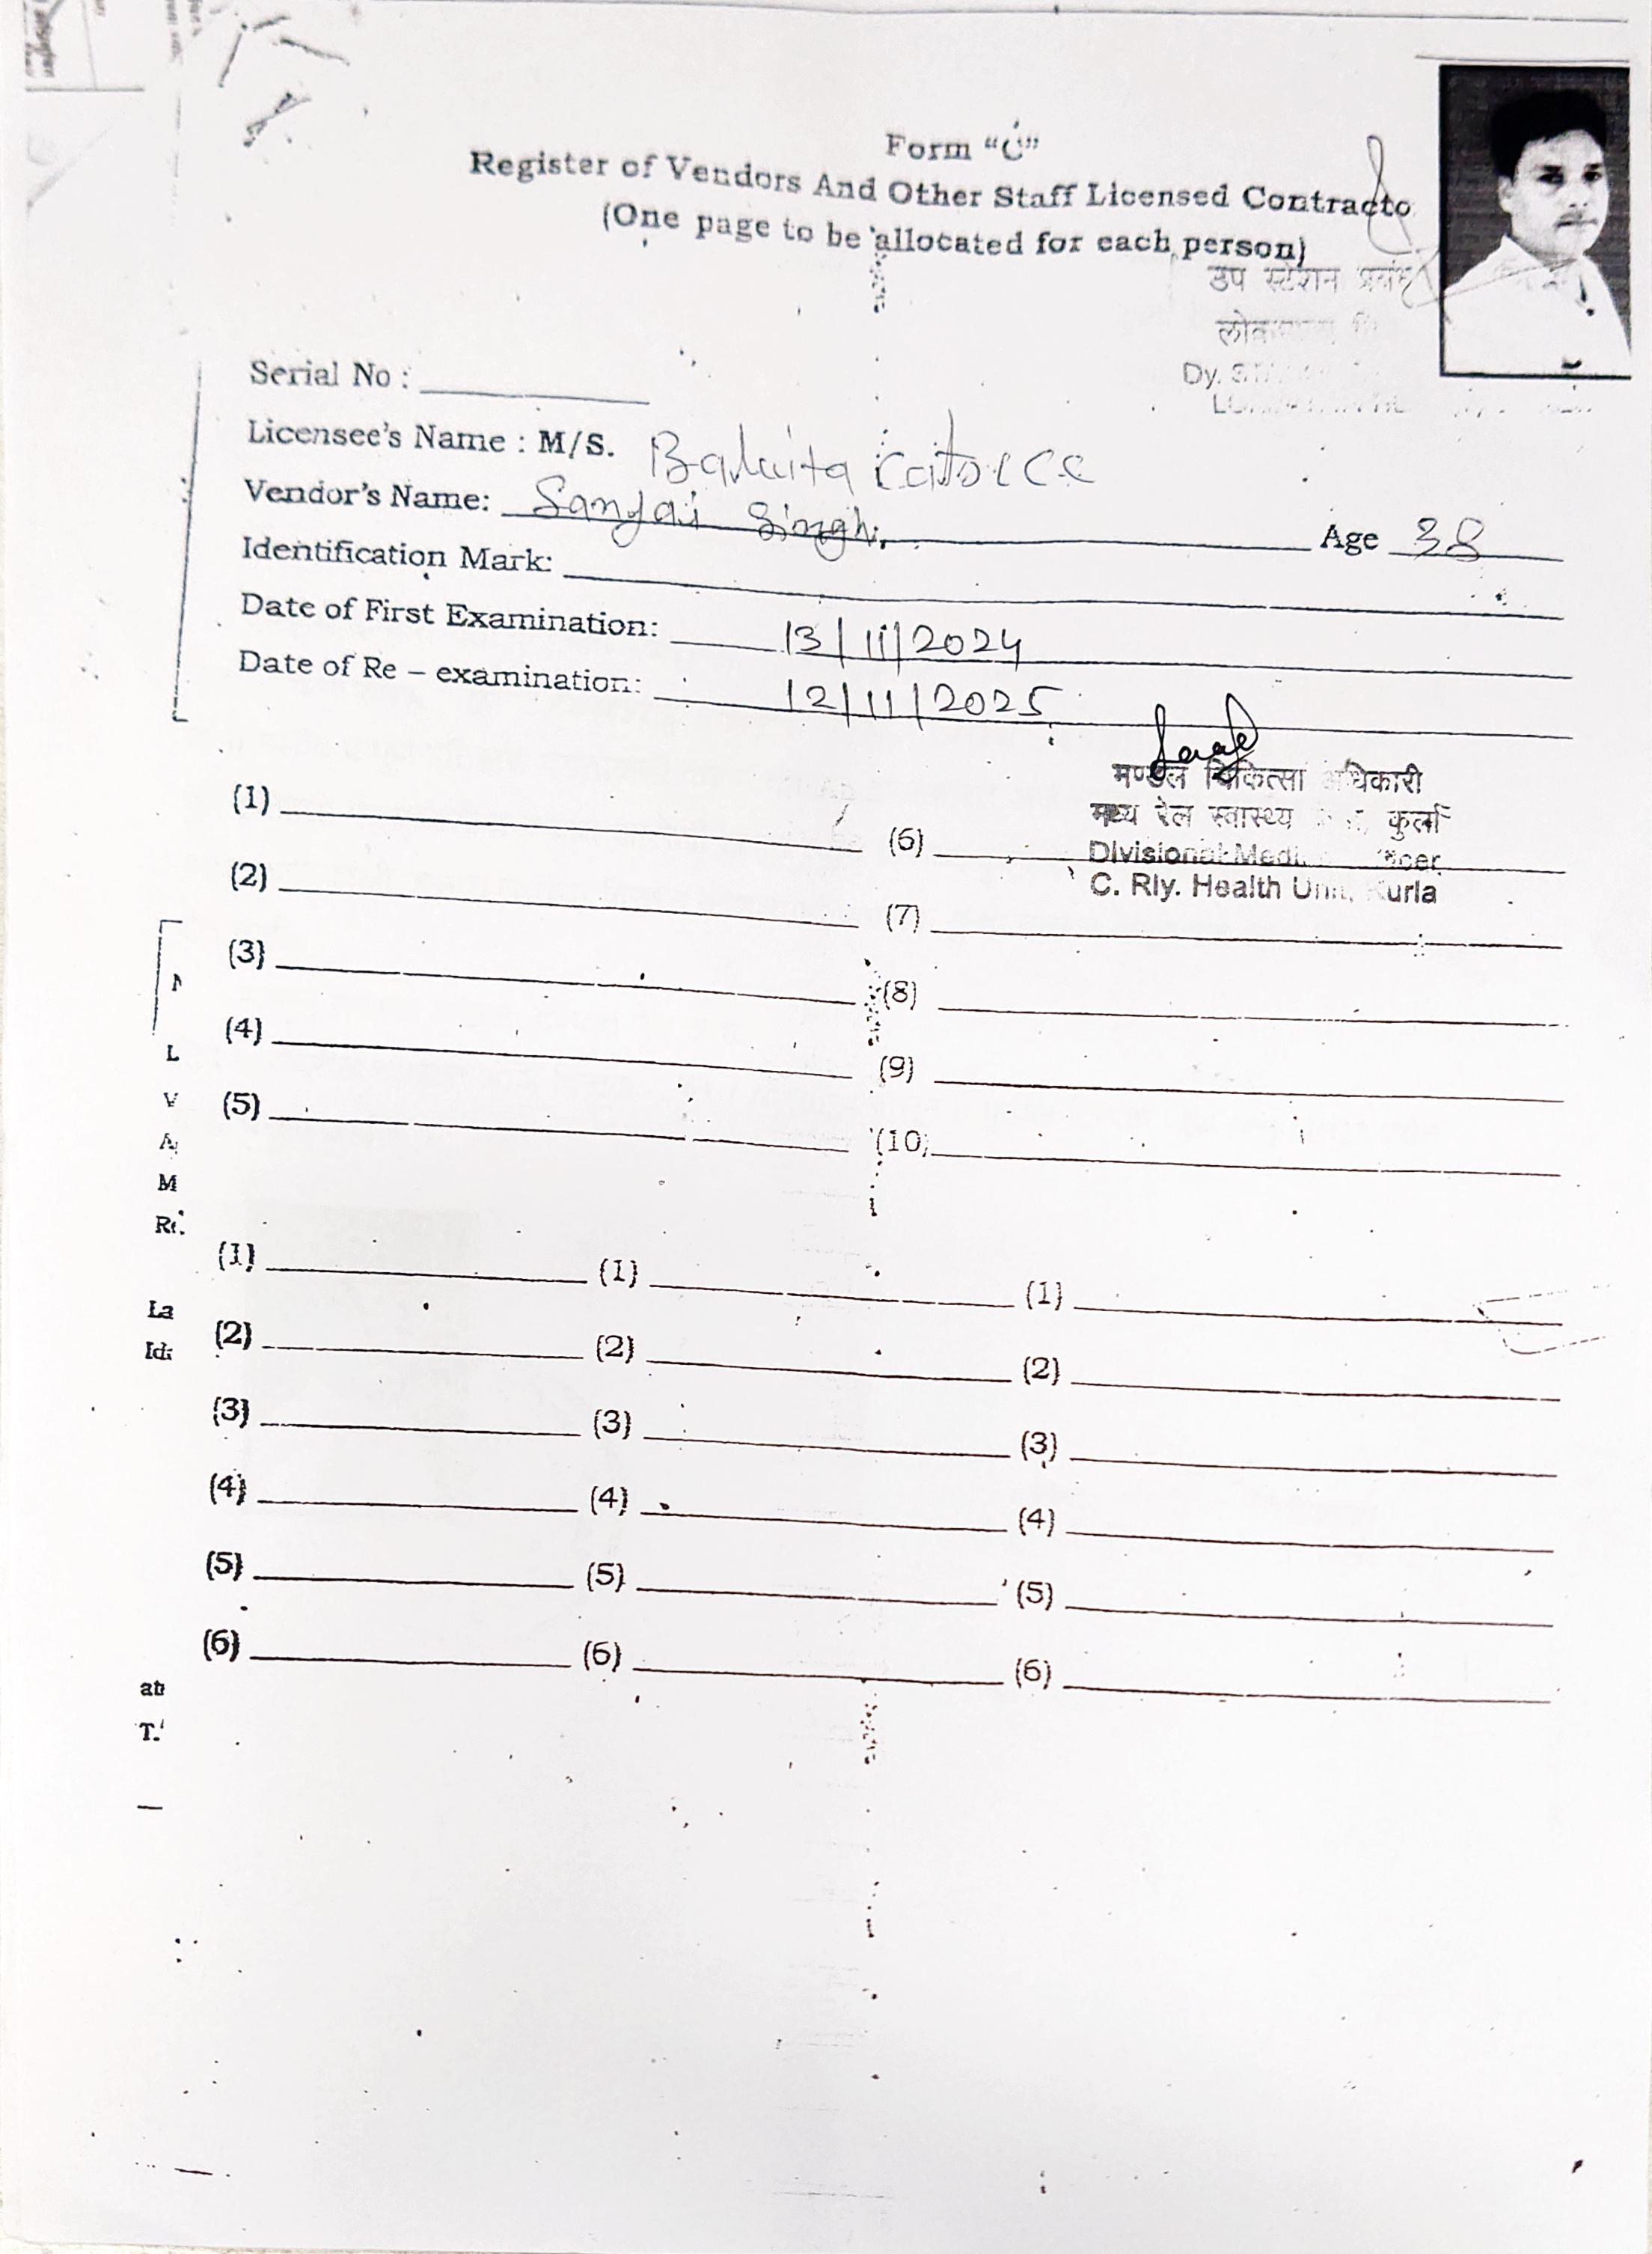 Form "C"
Register of Vendors And Other Staff Licensed Contracto
(One page to be allocated for each person)
उप स्टेशन प्रबंध
Dy.
Serial No :
Licensee's Name : M/S.
Vendor's Name: Sanjai Singh Age 38
Identification Mark:
Date of First Examination: 13/11/2024
Date of Re - examination: 12/11/2025
मण्डल चिकित्सा अधिकारी
मध्य रेल स्वास्थ्य कुर्ला
Divisional
C. Rly. Health Unit, Kurla
(1) (6)
(2) (7)
(3) (8)
(4) (9)
(5) (10)
L
V
M
(1) (1) (1)
La
(2) (2) (2)
(3) (3) (3)
(4) (4) (4)
(5) (5) (5)
(6) (6) (6)
T.